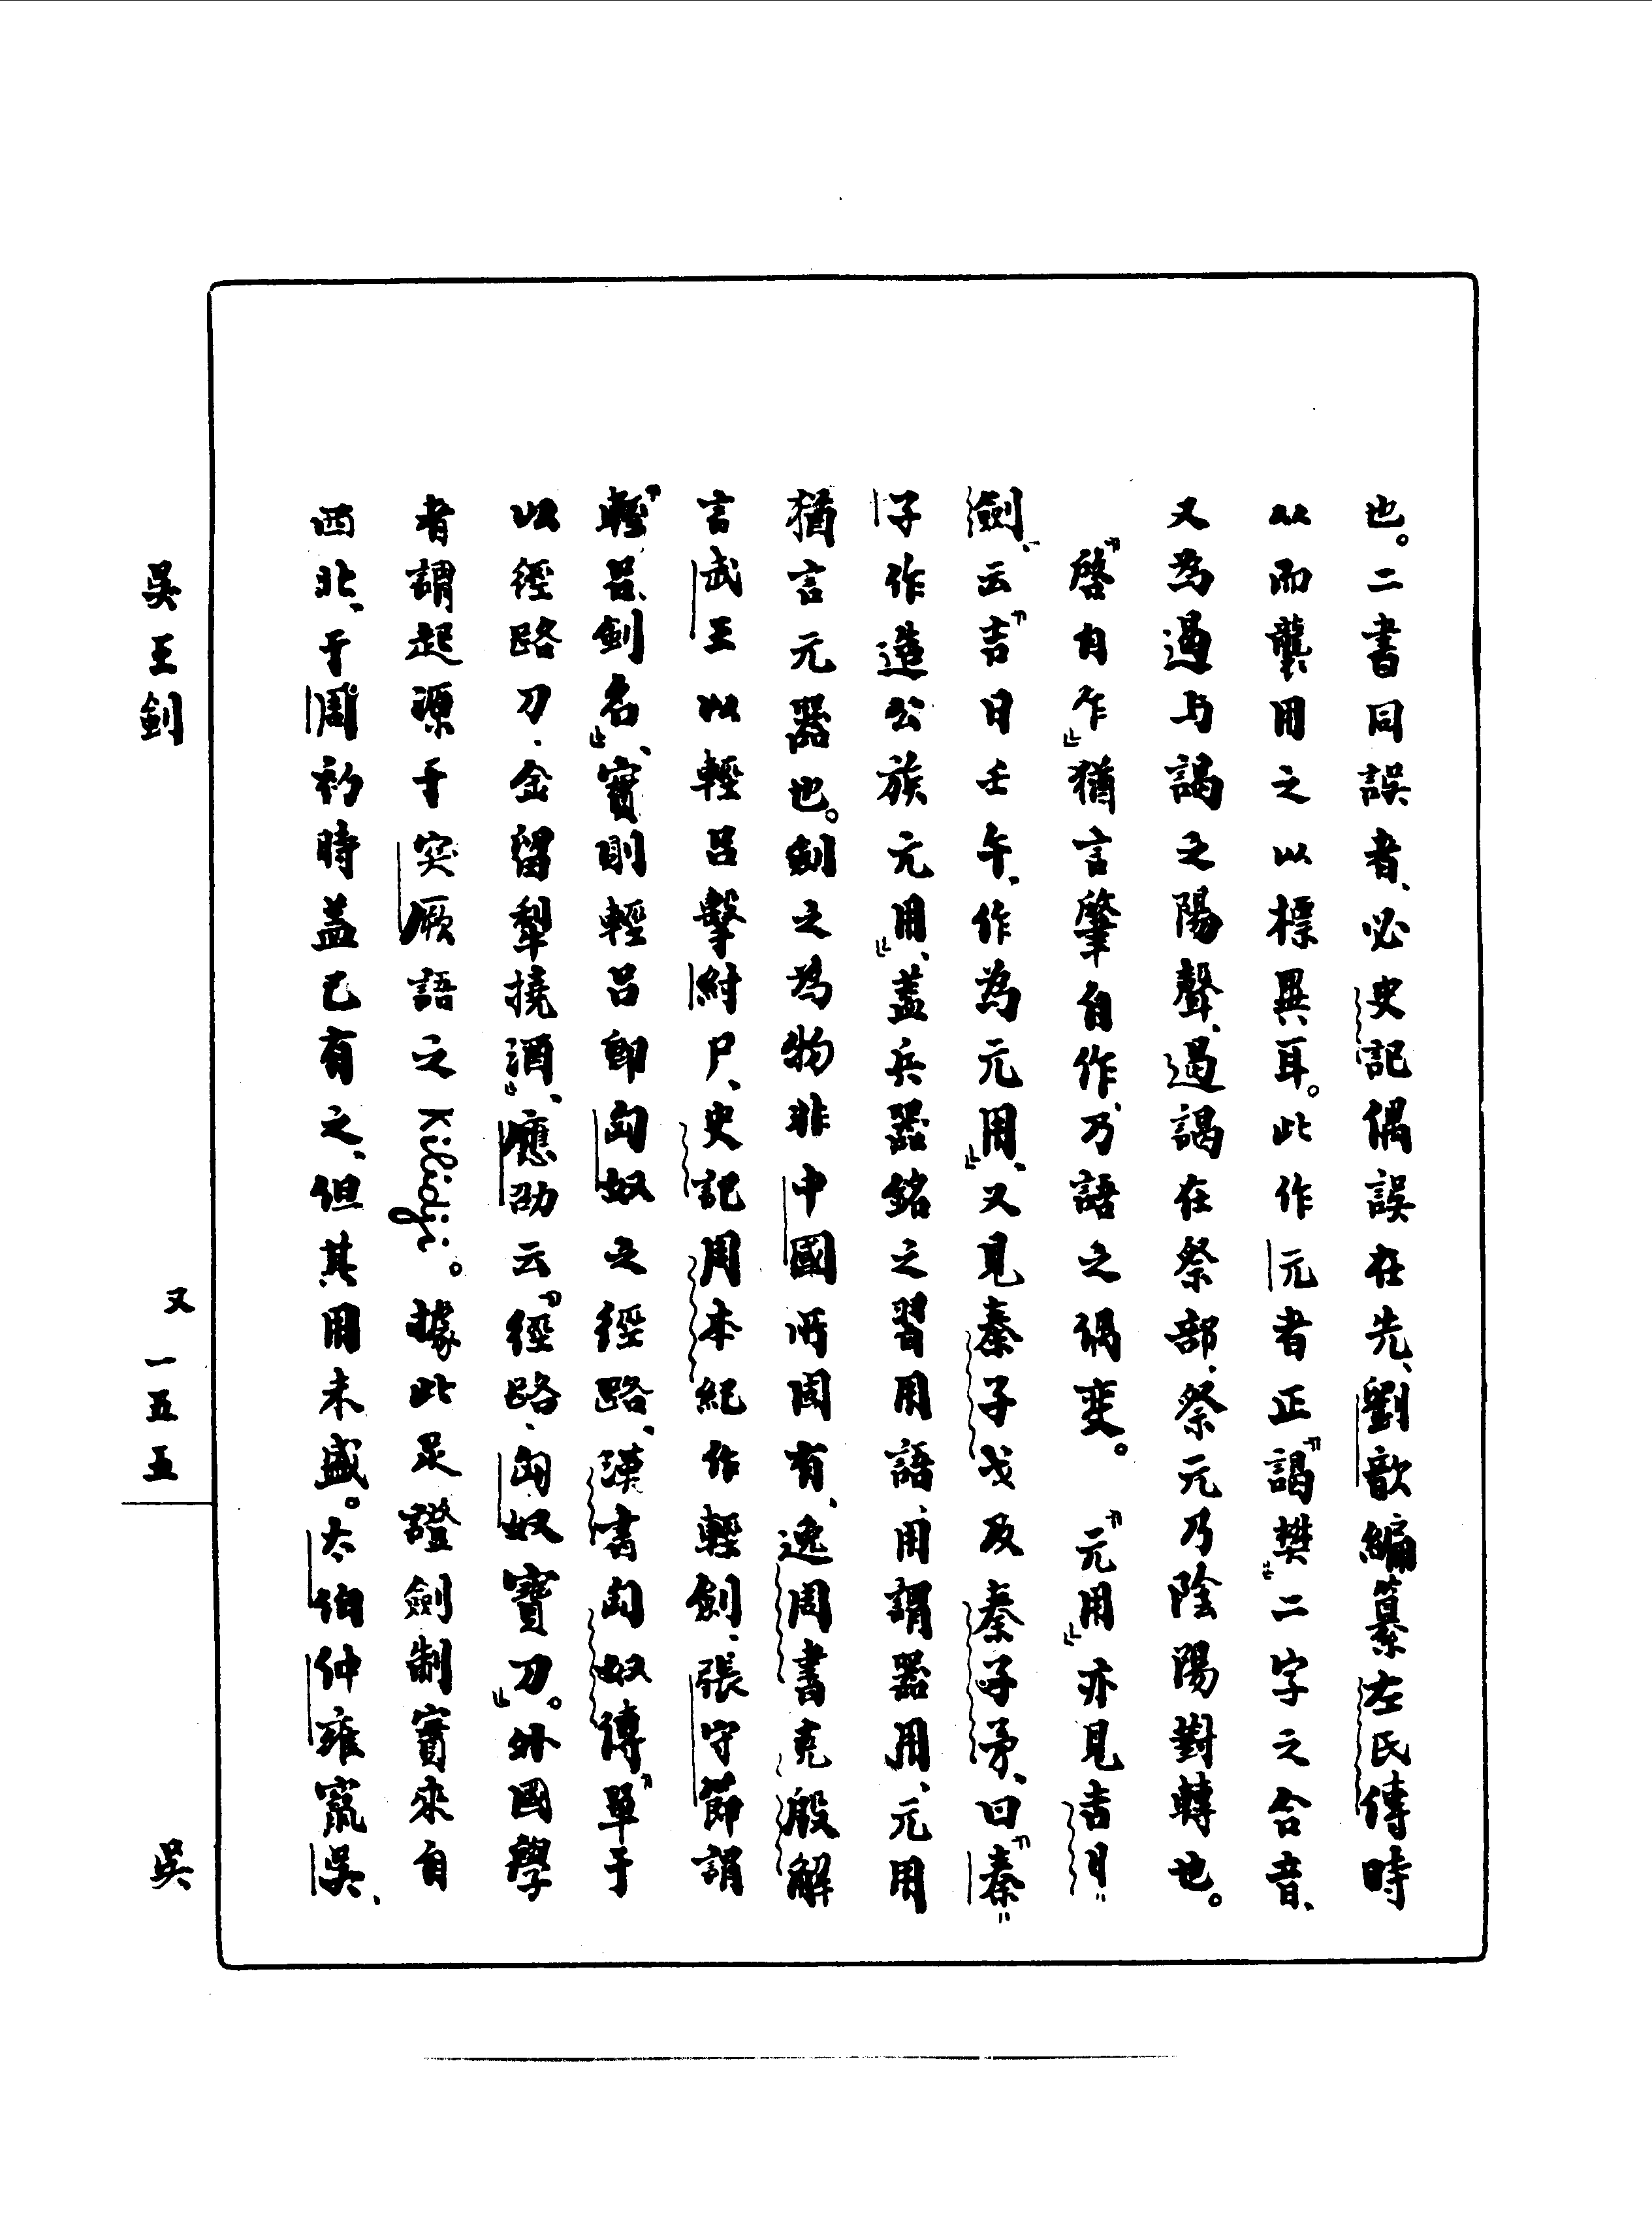 也。二書同誤者、必史記偶誤在先、劉歆編纂左氏傳時
从而襲用之以標異耳。此作元者正『謁樊』二字之合音、
又為遏与謁之陽聲、遏謁在祭部、祭元乃陰陽對轉也。
『啓自乍』猶言肇自作、乃語之偶變。『元用』亦見吉日
劍、云『吉日壬午、作為元用』、又見秦子戈及秦子矛、曰『秦
子作造公族元用』、蓋兵器銘之習用語、用謂器用、元用
猶言元器也。劍之為物非中國所固有、逸周書克殷解
言武王以輕呂擊紂尸、史記周本紀作輕劍、張守節謂
『輕呂、劍名』、實則輕呂即匈奴之徑路、漢書匈奴傳『單于
以徑路刀、金留犁撓酒』、應劭云『徑路、匈奴寶刀』。外國學
者謂起源于突厥語之Kilidji。據此足證劍制實來自
西北、于周初時蓋已有之、但其用未盛。太伯仲雍竄吳、
吳王劍
又一五五
吳